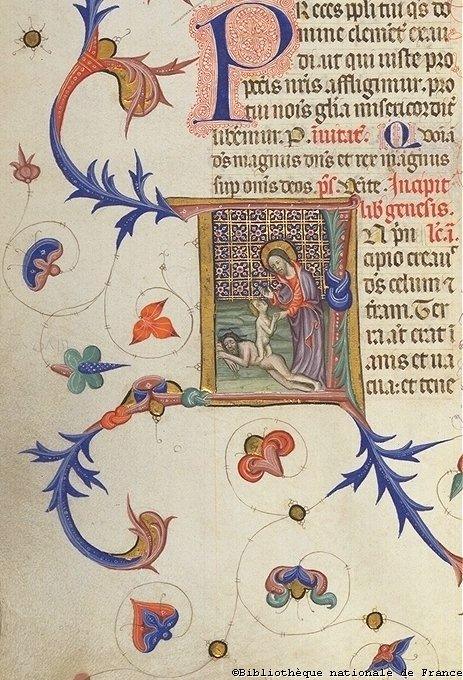 PReces ppli tui qs do
mine clement exau
di ut qui iuste pro
pctis nris affligimur. pro
tui nois glia misericordit
liberemur. P. iuitat. Q uoia
ds magnus dns et rex magnus
sup onis deos. ps. Uite. Incipit
lib genesis.
In pn lc. i.
cipio creauit
ds celum ⁊
tram. Ter
ra at erat i
anis et ua
cua: et tene
©Bibliothèque nationale de France